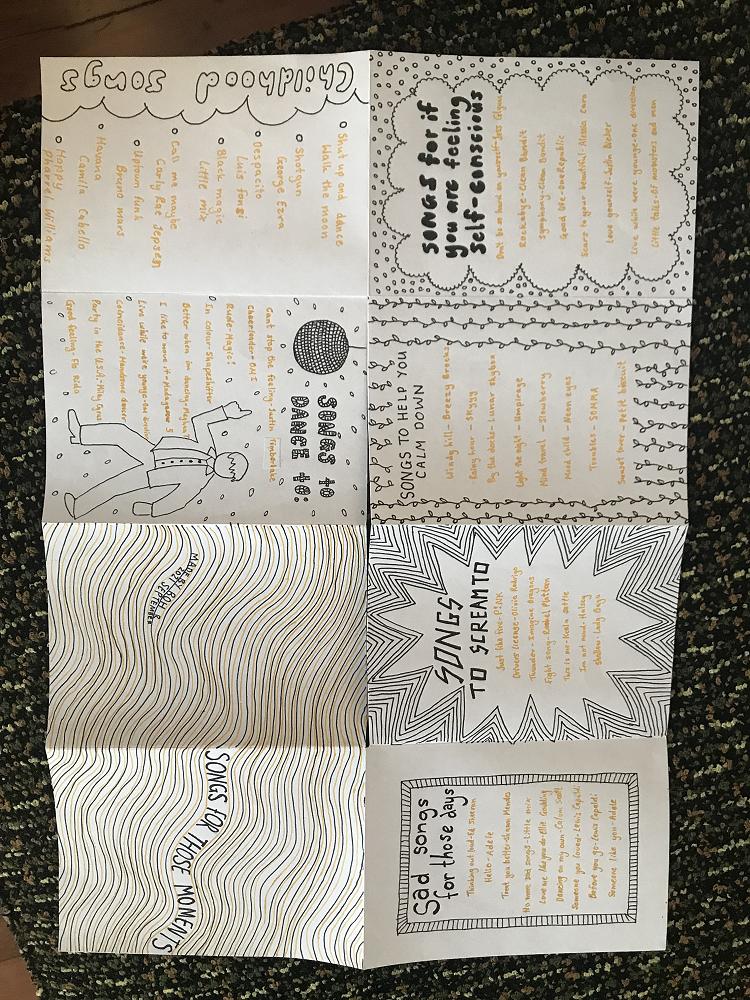 SONGS FOR THOSE MOMENTS
MADE BY
2021 SEPTEMBER
Childhood Songs
Shut up and dance
Walk the moon
Shotgun
George Ezra
Despacito
Luis fonsi
Black magic
Little mix
Call me maybe
Carly Rae Jepsen
Uptown funk
Bruno mars
Havana
Camila Cabello
Happy
Pharrel Williams
SONGS to
DANCE to:
Cant stop the feeling - Justin Timberlake
Cheerleader - OMI
Rude - Magic!
In colour - Shapeshifter
Better when im dancing - Meghan T
I like to move it - Madagascar 5
Live while we're young - one direction
Coincidance - Handsome dancer
Party in the U.S.A - Miley Cyrus
Good feeling - Flo Rida
SONGS for if
you are feeling
self-conscious
Don't be so hard on yourself - Jess Glynne
Rockabye - Clean Bandit
Symphony - Clean Bandit
Good life - One Republic
Scars to your beautiful - Alessia Cara
Love yourself - Justin Bieber
Live while we're young - one direction
Little talks - Of monsters and men
SONGS TO HELP YOU
CALM DOWN
Windy hill - Breezy Breaks
Rainy hour - Skyyy
By the docks - Lunar skyban
Light the night - umpirage
Mind travel - Slowberry
Mood child - Neon eyes
Troubles - SPAMA
Sunset tour - Petit biscuit
SONGS
TO SCREAM TO
Just like fire - P!NK
Drivers license - Olivia Rodrigo
Thunder - Imagine Dragons
Fight song - Rachel Platten
This is me - Keala settle
Im not mad - Halsey
Shallow - Lady Gaga
Sad songs
for those days
Thinking out loud - Ed Sheeran
Hello - Adele
Treat you better - Shawn Mendes
No more sad songs - Little mix
Love me like you do - Ellie Goulding
Dancing on my own - Calum Scott
Someone you loved - Lewis Capaldi
Before you go - Lewis Capaldi
Someone like you - Adele